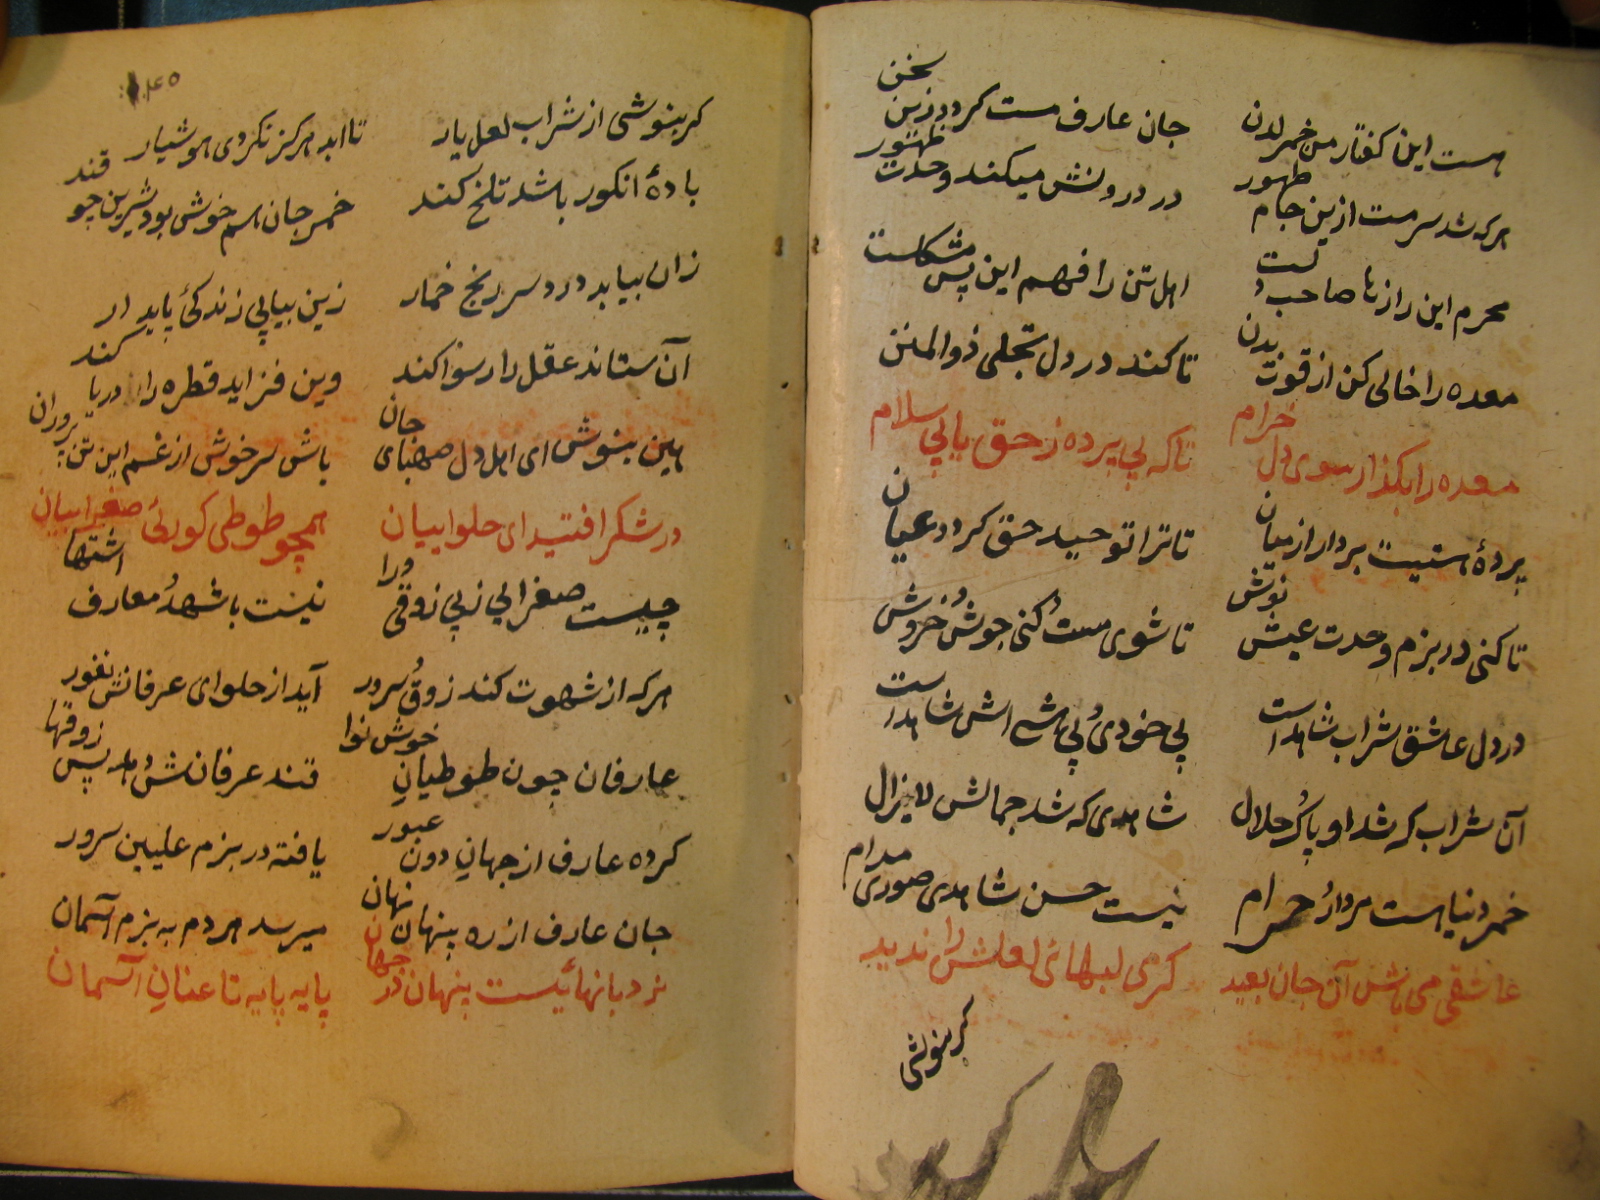 هست این کفتار من خمر لدن جان عارف مست کردد زین سخن
هرکه شد سرمست ازین جام طهور در درونش میکند وحدت ظهور
محرم این رازها صاحب دلست اهل تن را فهم این پس مشکلست
معده را خالی کن از قوت بدن تا کند در دل تجلی ذوالمنن
معده را بکذار سوی دل خرام تا که بی پرده ز حق یابی سلام
پردهٔ هستیت بردار از میان تا ترا توحید حق کردد عیان
تا کنی در بزم وحدت عیش نوش تا شوی مست کنی جوش خروش
در دل عاشق شراب شاهد است بی خودی بی هشی اش شاهد است
آن شراب که شد او پاک حلال شاهدی که شد جمالش لایزال
خمر دنیا هست مردار حرام نیست حسن شاهدی صوری مدام
عاشقی می باش آن جان بعید کر می لبهای لعلش را ندید
کر بنوشی
۴۵
کر بنوشی از شراب لعل یار تا ابد هرکز نکردی هوشیار
بادهٔ انکور باشد تلخ کند خمر جان هم خوشی بود شیرین چو قند
زان بیابد درد سر رنج خمار زین بیابی زندکئ پایدار
آن ستاند عقل را رسوا کند وین فزاید قطره را دریا کند
هین بنوش ای اهل دل صهبای جان باش سرخوش از غم این تن پروران
در شکر افتید ای حلواییان همچو طوطی کورئ صفراییان
چیست صفرایی ز بی زوقی ورا نیست با شهد معارف اشتها
هرکه از شهوت کند زوق سرور آید از حلوای عرفانش نفور
عارفان چون طوطیانِ خوش نوا قند عرفان شد پس زوقها
کرده عارف از جهانِ دون عبور یافته در بزم علیین سرور
جان عارف از ره پنهان نهان میرسد هر دم به بزم آسمان
نردبانهائیست پنهان در جهان پایه پایه تا عنانِ آسمان